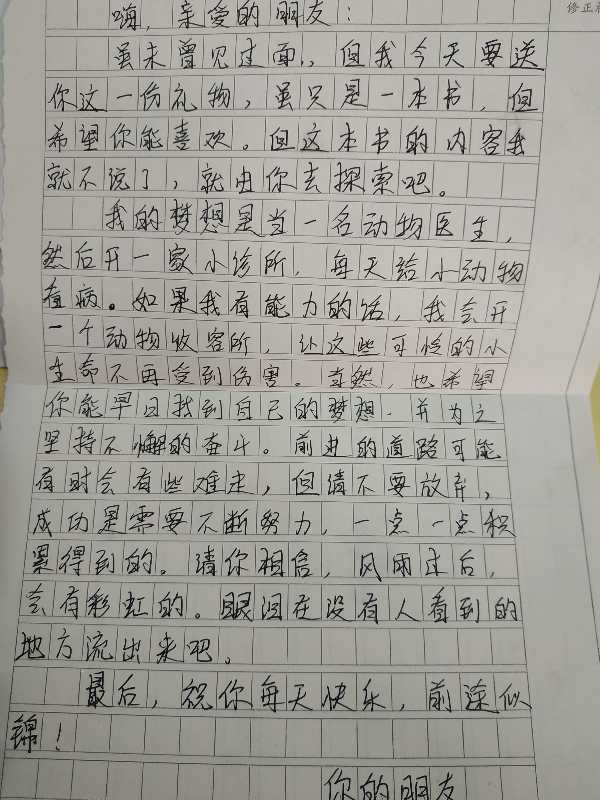 修正
嗨,亲爱的朋友:
虽未曾见过面,,但我今天要送
你这一份礼物,虽只是一本书,但
希望你能喜欢。但这本书的内容我
就不说了,就由你去探索吧。
我的梦想是当一名动物医生,
然后开一家小诊所,每天给小动物
看病。如果我有能力的话,我会开
一个动物收容所,让这些可怜的小
生命不再受到伤害。当然,也希望
你能早日找到自己的梦想.并为之
坚持不懈的奋斗。前进的道路可能
有时会有些难走,但请不要放弃,
成功是需要不断努力,一点一点积
累得到的。请你相信,风雨过后,
会有彩虹的。眼泪在没有人看到的
地方流出来吧。
最后,祝你每天快乐,前途似
锦!
你的朋友